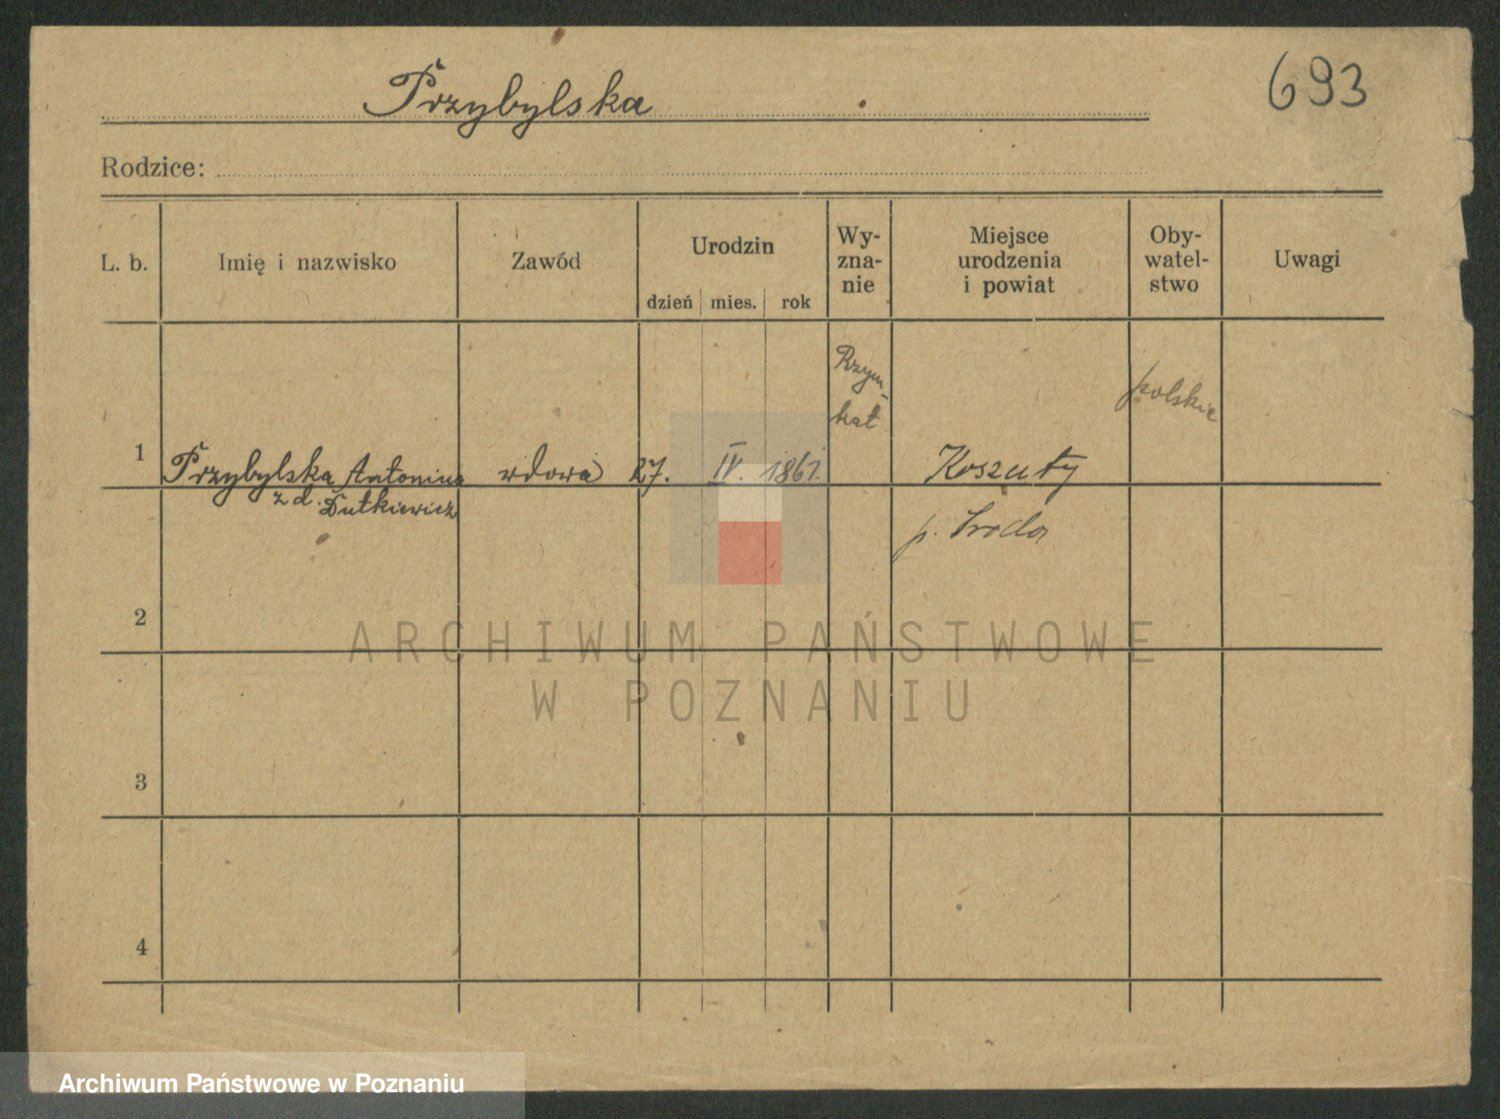 693
Przybylska
Rodzice:
L. b.
Imię i nazwisko
Zawód
Urodzin
dzień
mies.
rok
Wy-
zna-
nie
Miejsce
urodzenia
i powiat
Oby-
watel-
stwo
Uwagi
1
Przybylska Antonina
z d. Dutkiewicz
wdowa
27.
IV.
1861.
Rzym.-
kat
Koszuty
p. Środa
polskie
2
3
4
ARCHIWUM PAŃSTWOWE
W POZNANIU
Archiwum Państwowe w Poznaniu